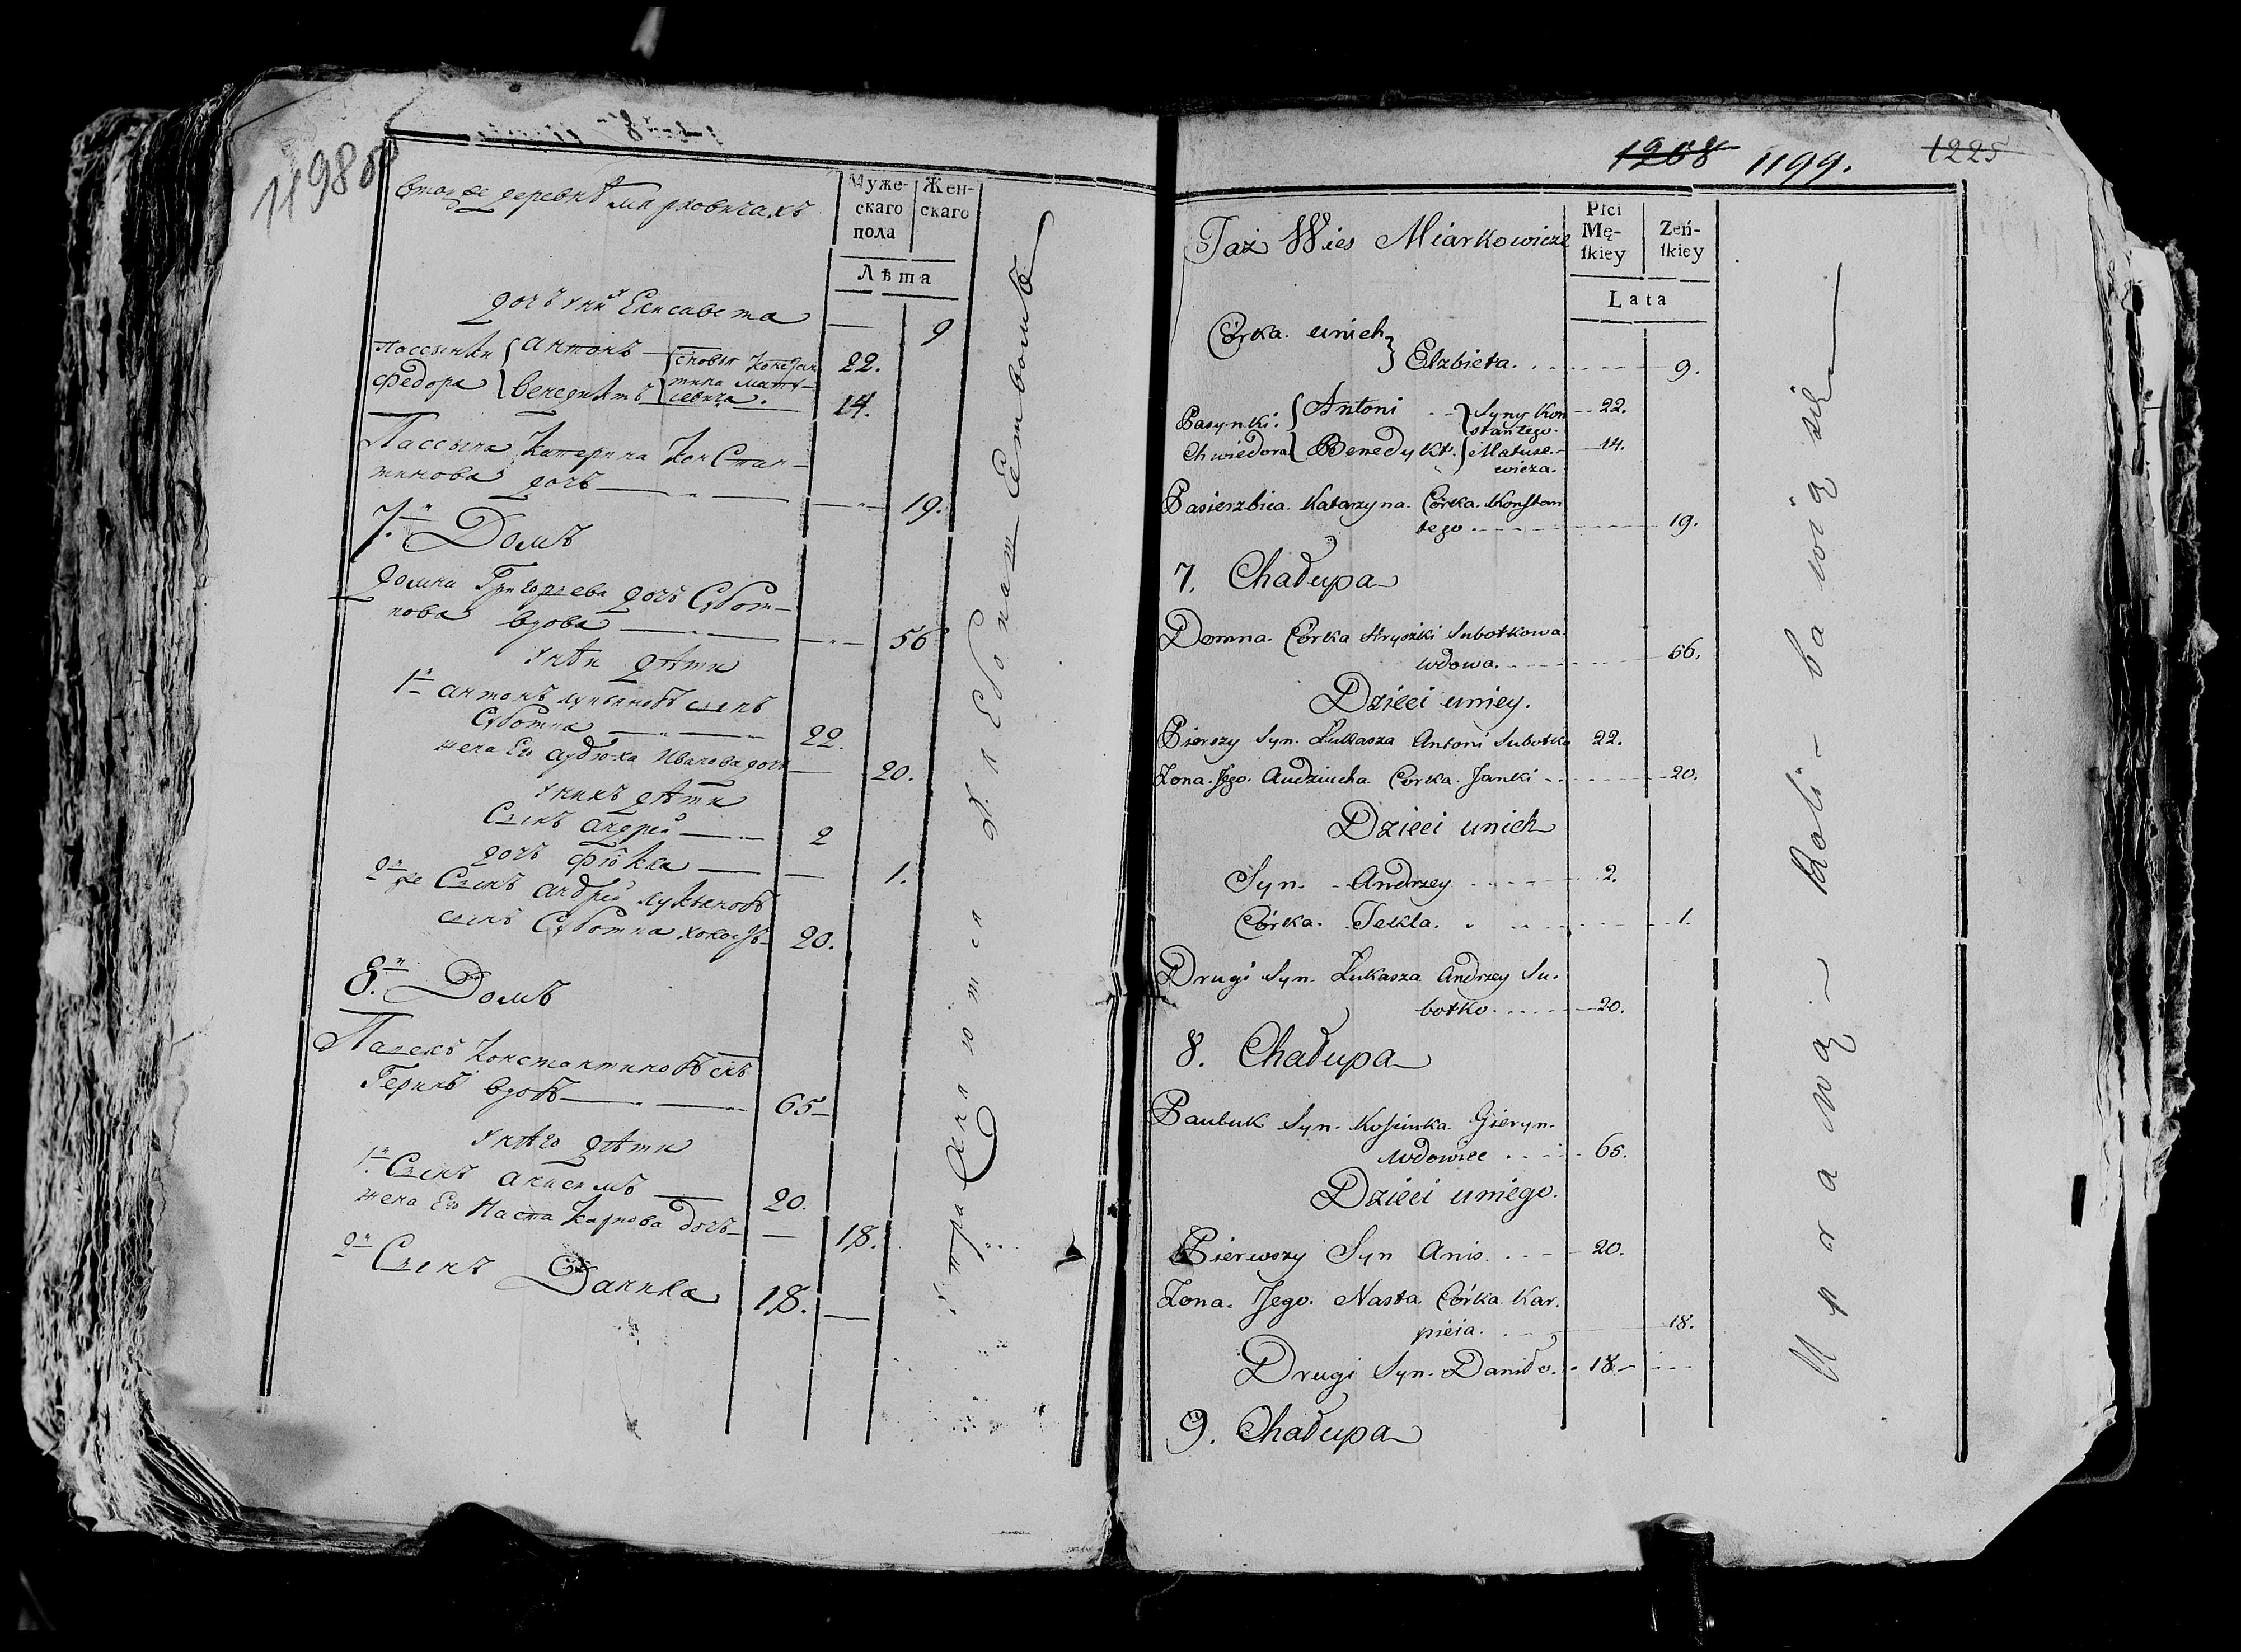 1198
Втой же деревнѣ Мярковичахъ
Муже-
скаго
пола
Жен-
скаго
Лѣта
дочь уних Елисавета 9
Пассынки Антонъ сновья Констан 22.
Федора Бенедиктъ тина Мату-
севича. 14.
Пассыпа Катерина Констан-
тинова дочь 19.
7.й Домъ
Домна Григорьева дочь Субот-
кова вдова 56
Унѣи дѣти
1й Антонъ Лукьяновъ сынъ
Суботка 22.
жена Его Аудюха Иванова дочь 20.
Унихъ дѣти
Сынъ Андрей 2
дочь Фіокла 1.
2й же Сынъ Андрей Лукьяновъ
сынъ Суботка холостъ 20.
8.й Домъ
Константиновъ снъ
Геринъ вдовъ 65
Унѣго дѣти
1й Сынъ Анисимъ 20.
жена Его Наста Карпова дочь 18.
2й Сынъ Данила 18.
Упражняются Хлебопашествомъ
1208 1199. 1225
Taż Wieś Miarkowicze
Płci
Mę-
ſkiey
Zeń-
ſkiey
Lata
Córka unich
Elzbieta. 9.
Pasynki: Antoni Syny Kon 22.
stantego.
Chwiedora Benedykt. Matusze- 14.
wicza.
Pasierzbica Katarzyna Córka Konstan
tego 19.
7. Chałupa
Domna Córka Hryszki Subotkowa
wdowa. 56.
Dzieci uniey.
Pierszy Syn. Łukasza Antoni Subotko 22.
Zona Jego. Audziucha Córka Janki 20.
Dzieci unich
Syn. Andrzey 2.
Córka. Tekla. 1.
Drugi Syn. Łukasza Andrzey Su-
botko. 20.
8. Chałupa
Pauluk Syn. Kosciuka Gieryn.
Wdowiec 65.
Dzieci uniego.
Pierwszy Syn Anis. 20.
Zona. Jego. Nasta Córka Kar-
pieia. 18.
Drugi Syn. Daniło. 18
9. Chałupa
Uprawą Roli bawią się